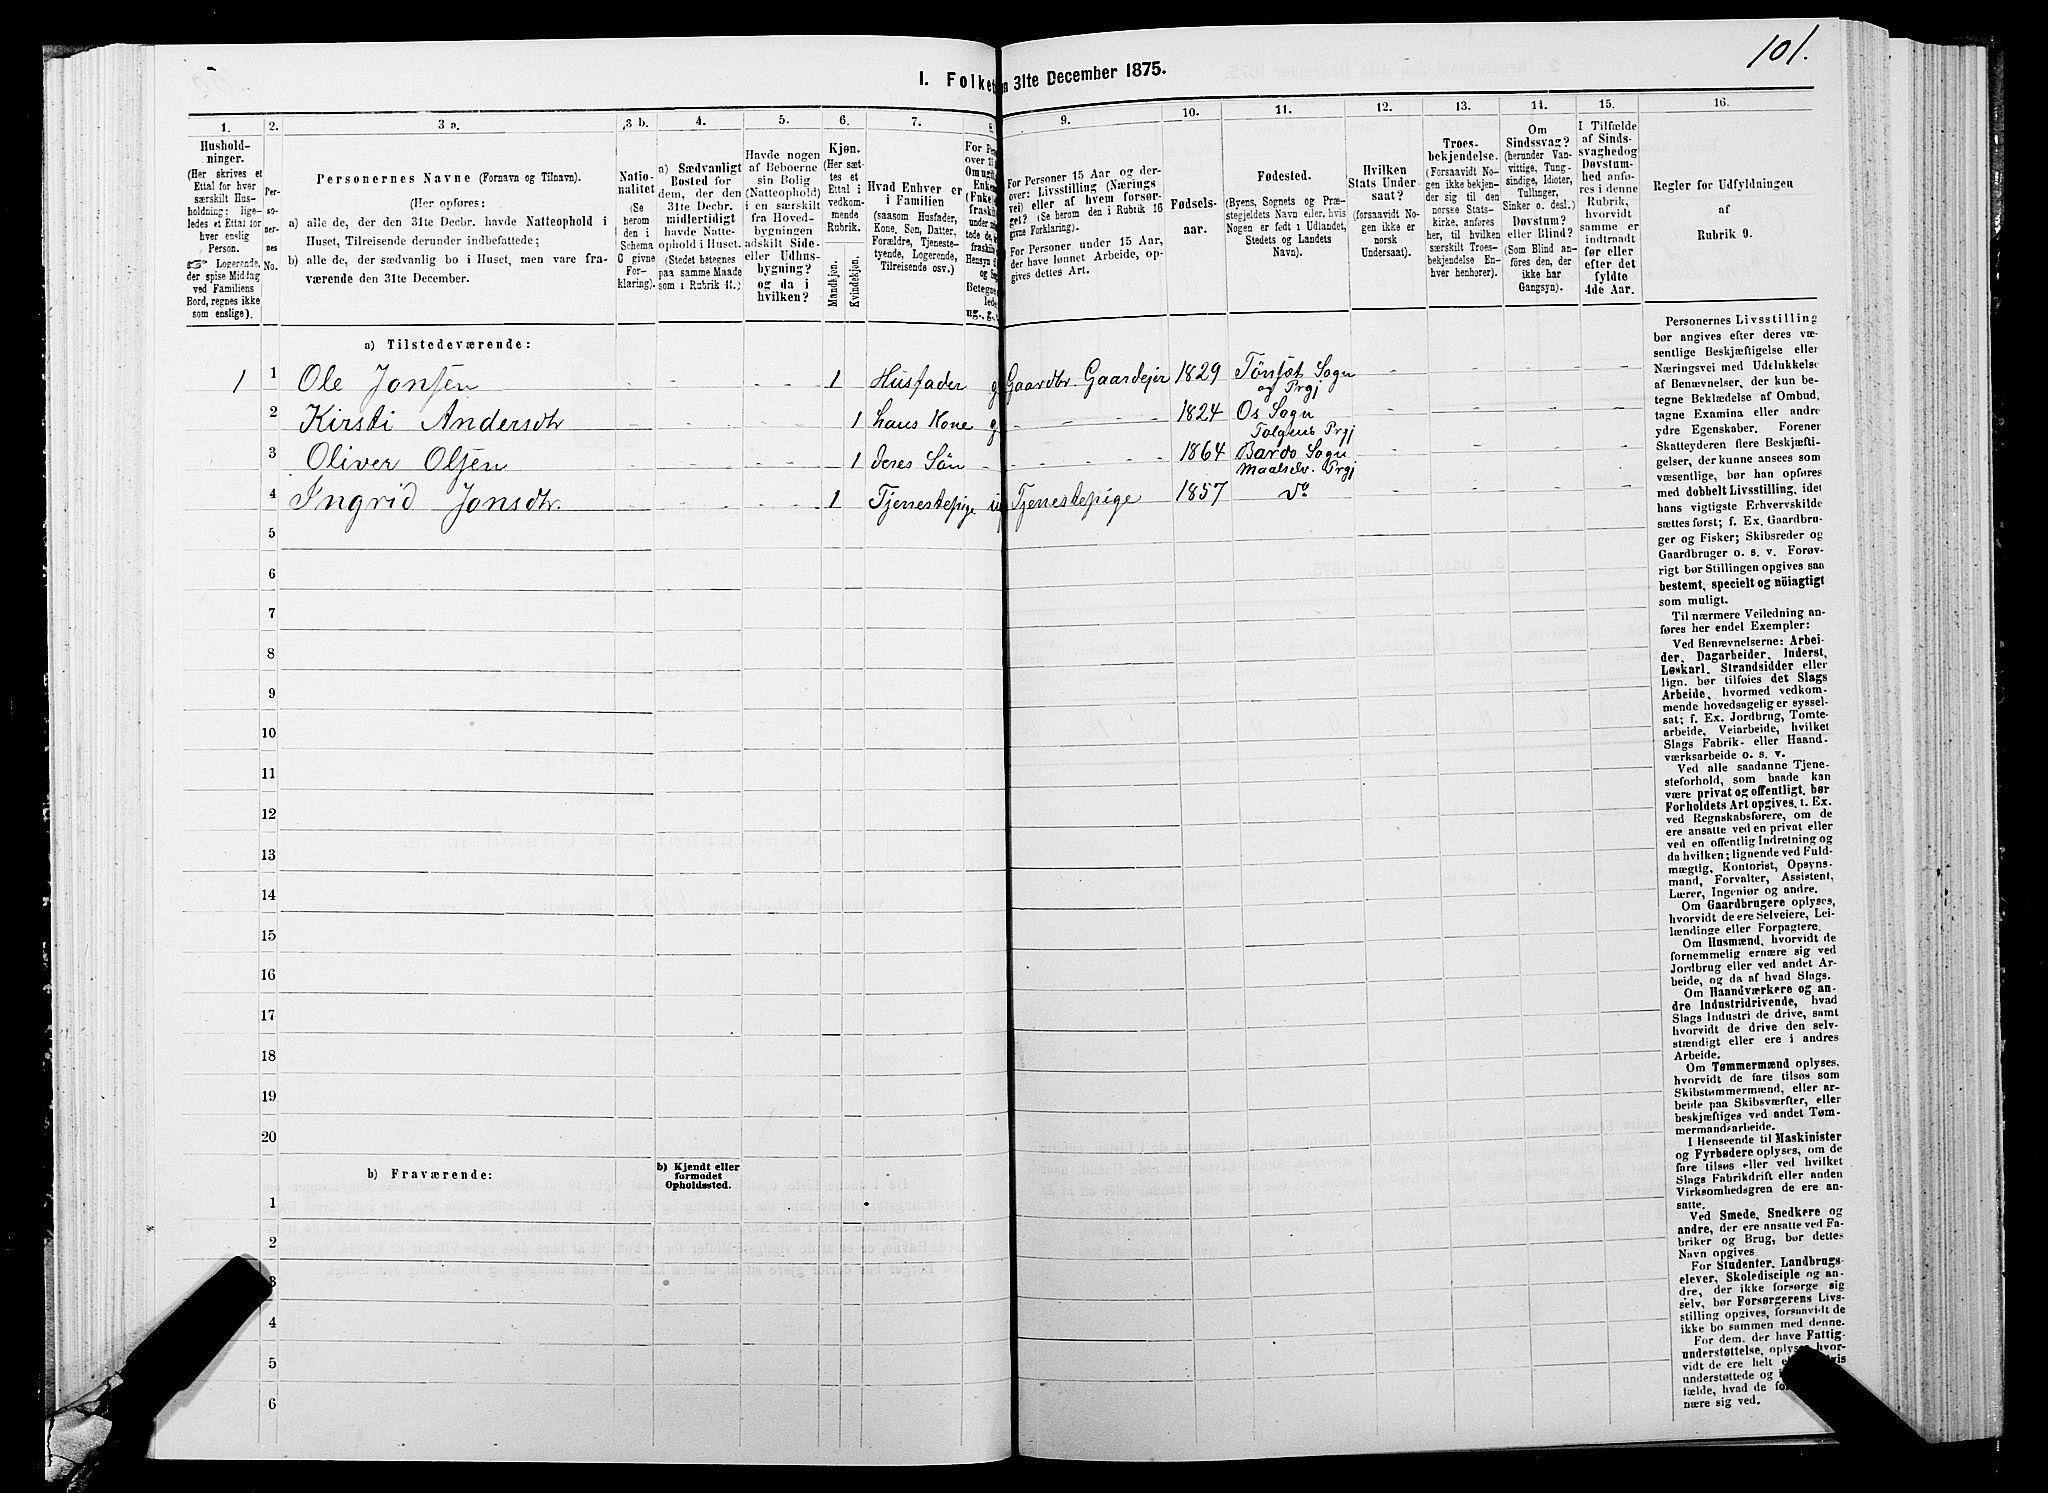 101.
I. Folket
n 31te December 1875.
1.
2.
3 a.
3 b.
4.
5.
6.
7.
8.
9.
10.
11.
12.
13.
14.
15.
16.
Hushold-
ninger.
(Her skrives et
Ettal for hver
særskilt Hus-
holdning; lige-
ledes et Ettal for
hver enslig
Person.
☞ Logerende,
der spise Middag
ved Familiens
Bord, regnes ikke
som enslige).
Per-
so-
ner-
nes
No.
Personernes Navne (Fornavn og Tilnavn).
(Her opføres:
a) alle de, der den 31te Decbr. havde Natteophold i
Huset, Tilreisende derunder indbefattede;
b) alle de, der sædvanlig bo i Huset, men vare fra-
værende den 31te December.
Natio-
nalitet
(Se
herom
den i
Schema
C givne
For-
klaring).
a) Sædvanligt
Bosted for
dem, der den
31te Decbr.
midlertidigt
havde Natte-
ophold i Huset.
(Stedet betegnes
paa samme Maade
som i Rubrik 11.)
Havde nogen
af Beboerne
sin Bolig
(Natteophold)
i en særskilt
fra Hoved-
bygningen
adskilt Side-
eller Udhus-
bygning?
og da i
hvilken?
Kjøn.
(Her sæt-
tes et
Ettal i
vedkom-
mende
Rubrik.
Mandkjøn.
Kvindekjøn.
Hvad Enhver er
i Familien
(saasom Husfader,
Kone, Søn, Datter,
Forældre, Tjeneste-
tyende, Logerende,
Tilreisende osv.)
For Personer 15 Aar og der-
over: Livsstilling (Nærings
vei) eller af hvem forsør-
get? (Se herom den i Rubrik 16
givne Forklaring).
For Personer under 15 Aar,
der have lønnet Arbeide, op-
gives dettes Art.
Fødsels-
aar.
Fødested.
(Byens, Sognets og Præ-
stegjeldets Navn eller, hvis
Nogen er født i Udlandet,
Stedets og Landets
Navn).
Hvilken
Stats Under-
saat?
(forsaavidt No-
gen ikke er
norsk
Undersaat).
Troes-
bekjendelse.
(Forsaavidt No-
gen ikke bekjen-
der sig til den
norske Stats-
kirke, anføres
her, til hvilken
særskilt Troes-
bekjendelse En-
hver henhorer).
Om
Sindssvag?
(herunder Van-
vittige, Tung-
sindige, Idioter,
Tullinger,
Sinker o. desl.)
Døvstum?
eller Blind?
(Som Blind an-
føres den, der
ikke har
Gangsyn).
I Tilfælde
af Sinds-
svaghed og
Døvstum-
hed anfø-
res i denne
Rubrik,
hvorvidt
samme er
indtraadt
før eller
efter det
fyldte
4de Aar.
Regler for Udfyldningen
af
Rubrik 9.
a) Tilstedeværende:
1 1 Ole Jonsen 1 Husfader g Gaardbr. Gaardejer 1829 Tönset Sogn
og Prgj
2 Kirsti Andersdtr 1 hans Kone g 1824 Os Sogn
Tolgens Prgj
3 Oliver Olsen 1 deres Sön 1864 Bardo Sogn
Maalselv. Prgj
4 Ingrid Jonsdtr. 1 Tjenestepige ug Tjenestepige 1857 do
5
6
7
8
9
10
11
12
13
14
15
16
17
18
19
20
b) Fraværende:
b) Kjendt eller
formodet
Opholdssted.
1
2
3
4
5
6
Personernes Livsstilling
bør angives efter deres væ-
sentlige Beskjæftigelse eller
Næringsvei med Udelukkelse
af Benævnelser, der kun be-
tegne Beklædelse af Ombud,
tagne Examina eller andre
ydre Egenskaber. Forener
Skatteyderen flere Beskjæfti-
gelser, der kunne ansees som
væsentlige, bør han opføres
med dobbelt Livsstilling, idet
hans vigtigste Erhvervskilde
sættes først; f. Ex. Gaardbru-
ger og Fisker; Skibsreder og
Gaardbruger o. s. v. Forøv-
rigt bør Stillingen opgives saa
bestemt, specielt og nöiagtigt
som muligt.
Til nærmere Veiledning an-
føres her endel Exempler:
Ved Benævnelserne: Arbei-
der, Dagarbeider, Inderst,
Løskarl, Strandsidder eller
lign. bør tilføies det Slags
Arbeide, hvormed vedkom-
mende hovedsagelig er syssel-
sat; f. Ex. Jordbrug, Tomte-
arbeide, Veiarbeide, hvilket
Slags Fabrik- eller Haand-
værksarbeide o. s. v.
Ved alle saadanne Tjene-
steforhold, som baade kan
være privat og offentligt, bør
Forholdets Art opgives, t. Ex.
ved Regnskabsførere, om de
ere ansatte ved en privat eller
ved en offentlig Indretning og
da hvilken; lignende ved Fuld-
mægtig, Kontorist, Opsyns-
mand, Forvalter, Assistent,
Lærer, Ingeniør og andre.
Om Gaardbrugere oplyses,
hvorvidt de ere Selveiere, Lei-
lændinge eller Forpagtere.
Om Husmænd, hvorvidt de
fornemmelig ernære sig ved
Jordbrug eller ved andet Ar-
beide, og da af hvad Slags.
Om Haandværkere og an-
dre Industridrivende, hvad
Slags Industri de drive, samt
hvorvidt de drive den selv-
stændigt eller ere i andres
Arbeide.
Om Tømmermænd oplyses,
hvorvidt de fare tilsøs som
Skibstømmermænd, eller ar-
beide paa Skibsværfter, eller
beskjæftiges ved andet Tøm-
mermandsarbeide.
I Henseende til Maskinister
og Fyrbødere oplyses, om de
fare tilsøs eller ved hvilket
Slags Fabrikdrift eller anden
Virksomhedsgren de ere an-
satte.
Ved Smede, Snedkere og
andre, der ere ansatte ved Fa-
briker og Brug, bør dettes
Navn opgives
For Studenter, Landbrugs-
elever, Skoledisciple og an-
dre, der ikke forsørge sig
selv, bør Forsørgerens Livs-
stilling opgives, forsaavidt de
ikke bo sammen med denne.
For dem, der have Fattig-
understøttelse, oplyses hvor-
vidt de ere helt
understøttede og i
fælde, hvad de
nære sig ved.